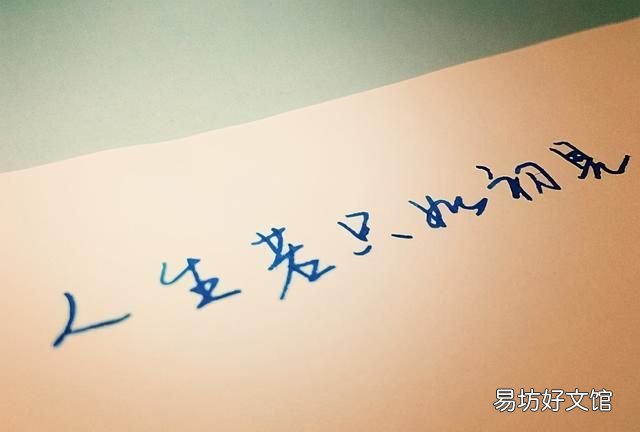 人生若只如初见
易坊好文馆